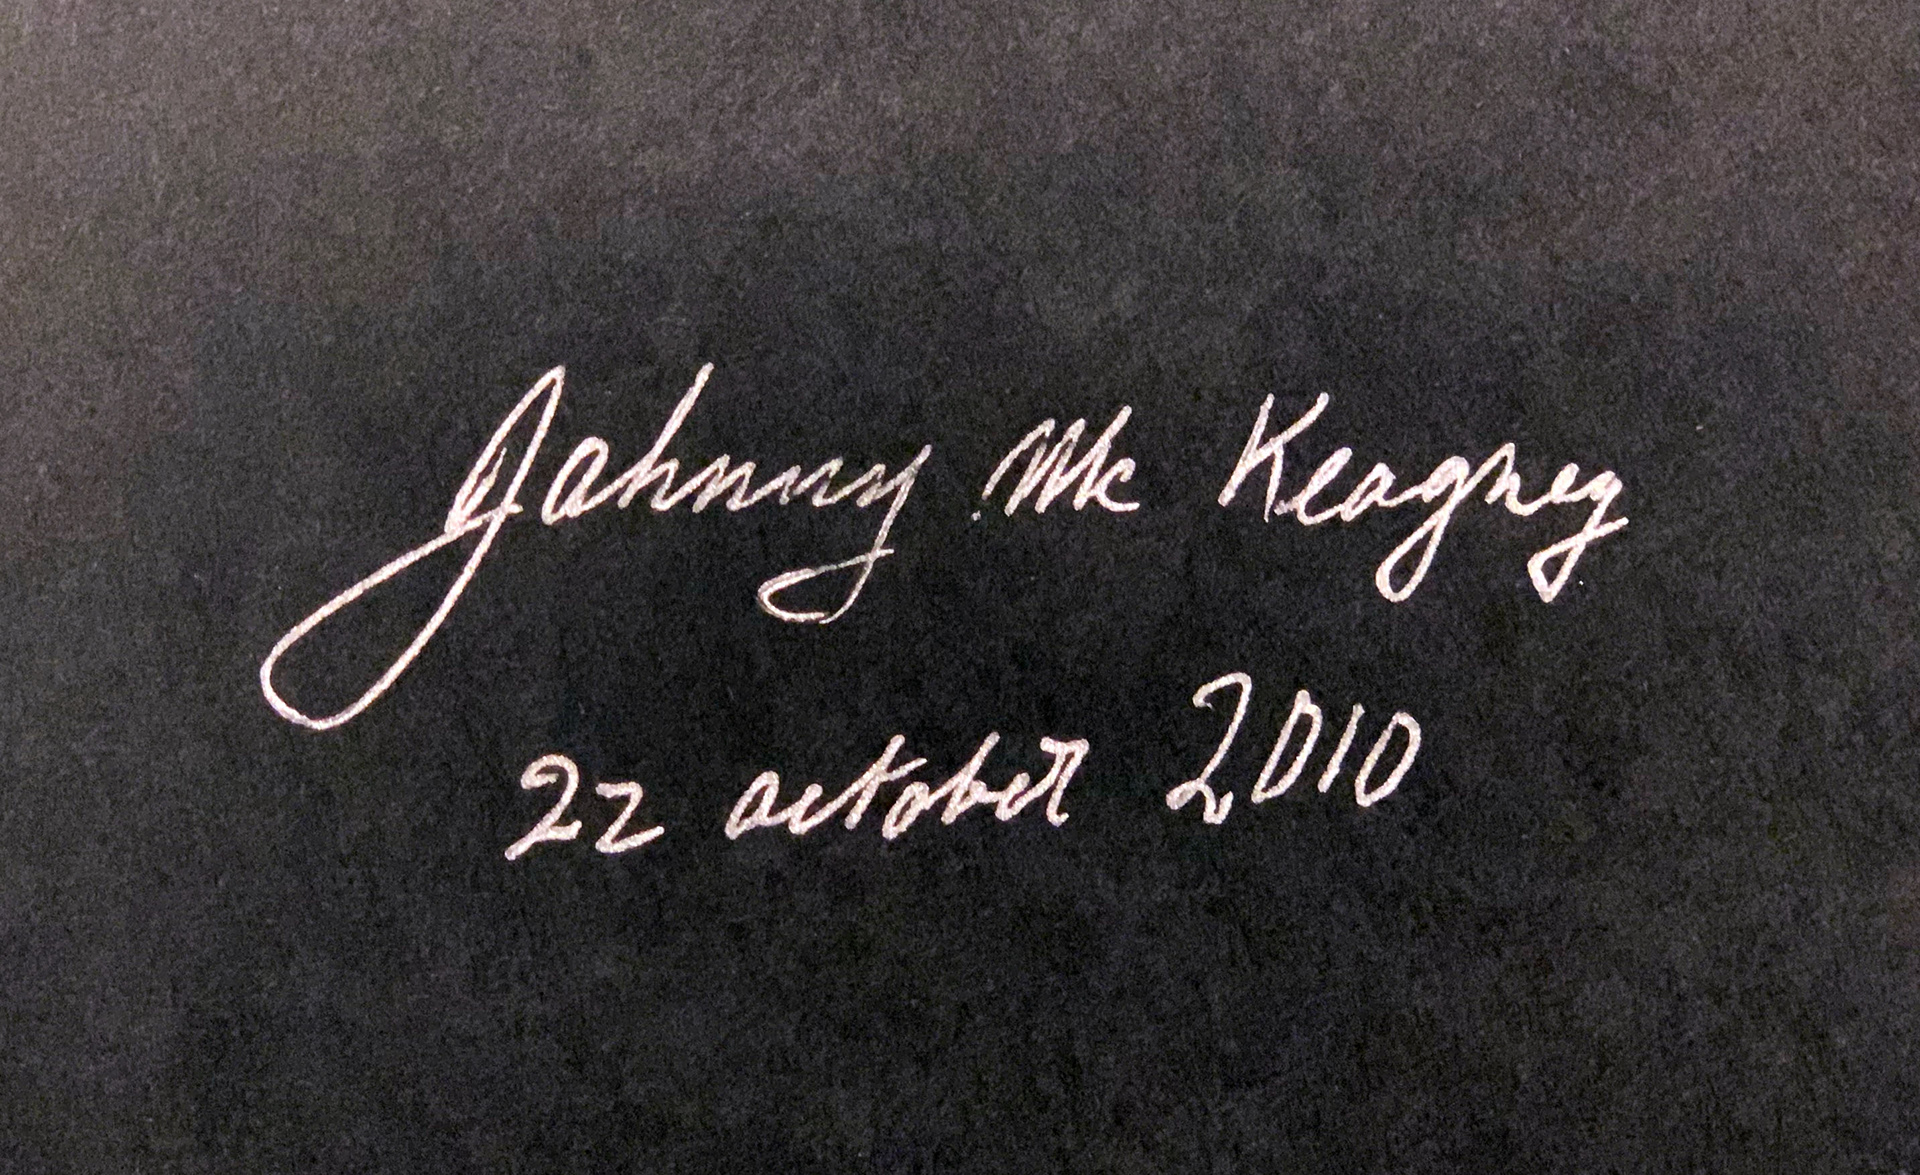 Johnny Mc Keagney
22 october 2010